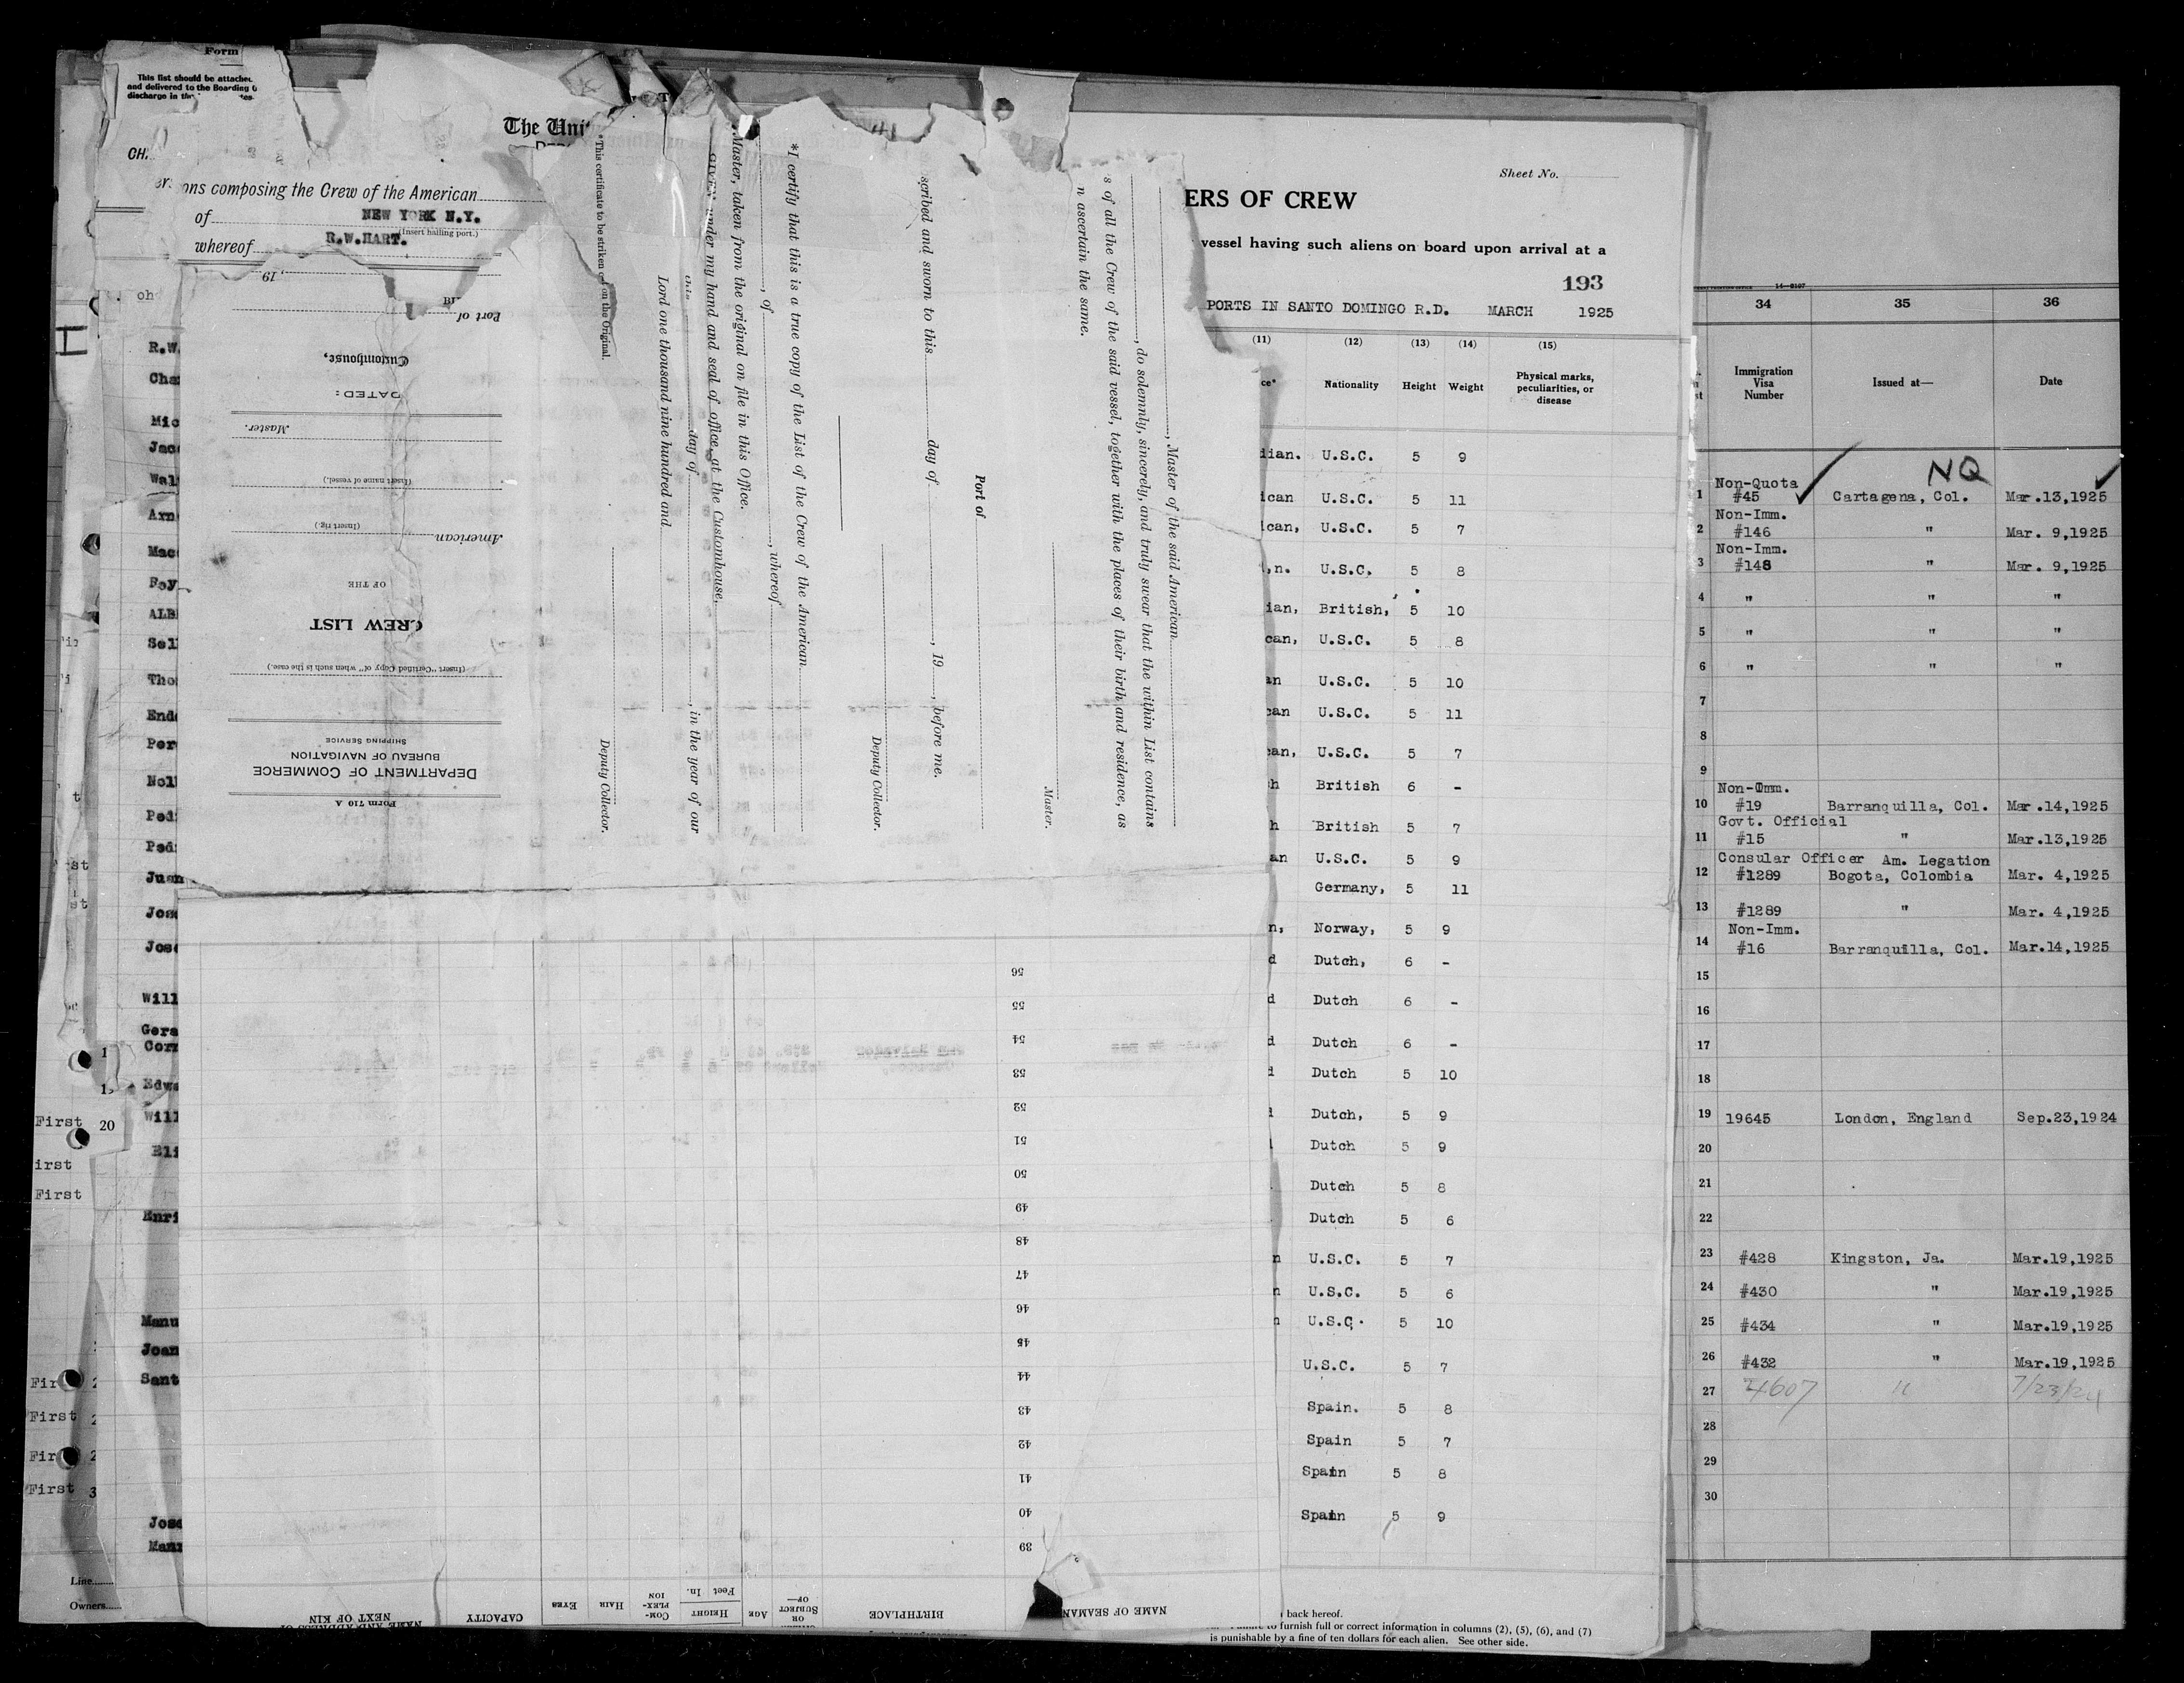 Form
This list should be attached
and delivered to the Boarding
discharge in the
The Uni
ons composing the Crew of the American
of NEW YORK N.Y.
(Insert hailing port.)
whereof R.W.HART.
R.W.
Cha
Mic
Jac
Wal
Arn
Mac
Foy
ALB
Sel
Tho
End
Per
Nol
Ped
Ped
Juan
Jos
Jos
Will
Gera
Corn
Edwa
Will
Eli
Enri
Manu
Joan
Sant
Jose
Manu
First 20
irst
First
First
First
Line
Owners
, 19
Port of
Customhouse,
DATED:
Master.
(Insert name of vessel.)
(Insert rig.)
American
OF THE
CREW LIST
(Insert "Certified Copy of" when such is the case.)
SHIPPING SERVICE
BUREAU OF NAVIGATION
DEPARTMENT OF COMMERCE
Form 710 A
*This certificate to be striken on the Original.
Deputy Collector.
Lord one thousand nine hundred and
this day of , in the year of our
GIVEN under my hand and seal of office, at the Customhouse,
Master, taken from the original on file in this Office.
, of , whereof
*I certify that this is a true copy of the List of the Crew of the American
Deputy Collector.
scribed and sworn to this day of , 19 , before me.
Port of
Master.
n ascertain the same.
s of all the Crew of the said vessel, together with the places of their birth and residence, as
, do solemnly, sincerely, and truly swear that the within List contains
, Master of the said American
56
55
54
53
52
51
50
49
48
47
46
45
44
43
42
41
40
39
NEXT OF KIN
CAPACITY
EYES
HAIR
COM-PLEX-ION
HEIGHT
Feet In.
AGE
SUBJECT OF—
BIRTHPLACE
NAME OF SEAMAN
Sheet No.
ERS OF CREW
vessel having such aliens on board upon arrival at a
193
PORTS IN SANTO DOMINGO R.D. MARCH 1925
(11) (12) (13) (14) (15)
Nationality Height Weight Physical marks, peculiarities, or disease
dian. U.S.C. 5 9
ican U.S.C. 5 11
ican, U.S.C. 5 7
n. U.S.C. 5 8
ian, British, 5 10
can, U.S.C. 5 8
an U.S.C. 5 10
can U.S.C. 5 11
can, U.S.C. 5 7
h British 6 -
h British 5 7
an U.S.C. 5 9
Germany, 5 11
n, Norway, 5 9
d Dutch, 6 -
d Dutch 6 -
d Dutch 6 -
d Dutch 5 10
Dutch, 5 9
Dutch 5 9
Dutch 5 8
Dutch 5 6
n U.S.C. 5 7
n U.S.C. 5 6
n U.S.C. 5 10
U.S.C. 5 7
Spain. 5 8
Spain 5 7
Spain 5 8
Spain 5 9
back hereof.
to furnish full or correct information in columns (2), (5), (6), and (7)
is punishable by a fine of ten dollars for each alien. See other side.
34 35 36
Immigration Visa Number Issued at— Date
NQ
Non-Quota
1 #45 Cartagena, Col. Mar.13,1925
Non-Imm.
2 #146 " Mar. 9,1925
Non-Imm.
3 #148 " Mar. 9,1925
4 " " "
5 " " "
6 " " "
7
8
9
Non-Imm.
10 #19 Barranquilla, Col. Mar.14,1925
Govt. Official
11 #15 " Mar.13,1925
Consular Officer Am. Legation
12 #1289 Bogota, Colombia Mar. 4,1925
13 #1289 " Mar. 4,1925
Non-Imm.
14 #16 Barranquilla, Col. Mar.14,1925
15
16
17
18
19 19645 London, England Sep.23,1924
20
21
22
23 #428 Kingston, Ja. Mar.19,1925
24 #430 " Mar.19,1925
25 #434 " Mar.19,1925
26 #432 " Mar.19,1925
27 4607 " 7/23/24
28
29
30